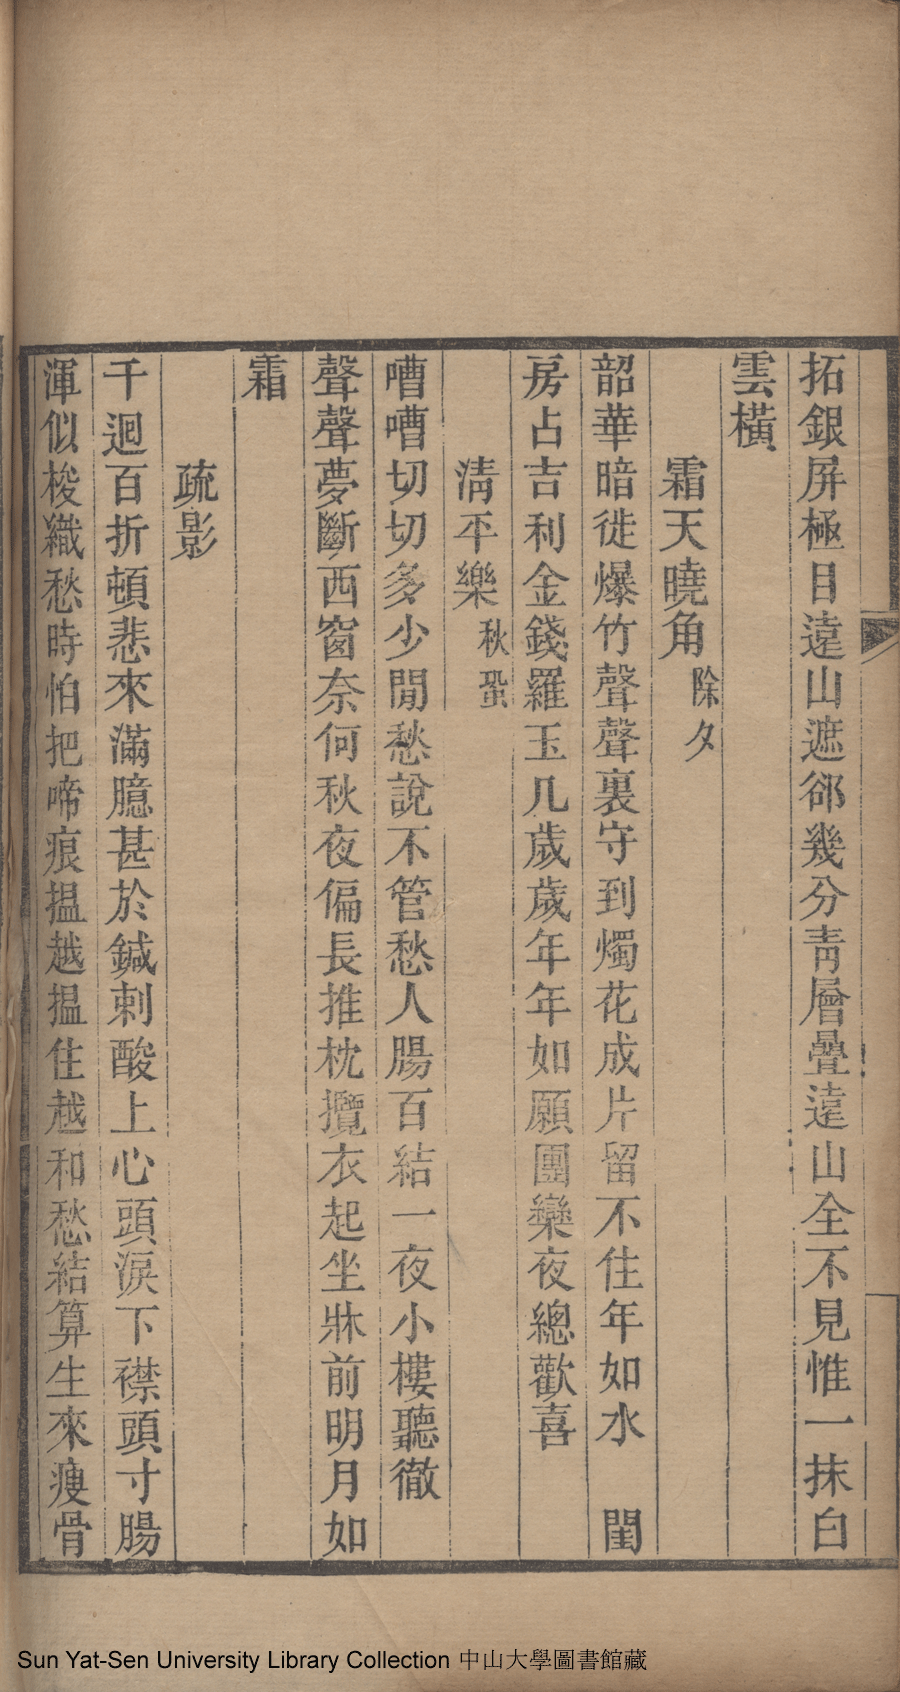 拓銀屏極目遠山遮郤幾分靑層曡遠山全不見惟一抹白
雲橫
霜天曉角 除夕
韶華暗徙爆竹聲聲裏守到燭花成片留不住年如水　閨
房占吉利金錢羅玉几歲歲年年如願團欒夜總歡喜
淸平樂 秋蛩
嘈嘈切切多少閒愁說不管愁人腸百結一夜小樓聽徹
聲聲夢斷西窗奈何秋夜偏長推枕攬衣起坐牀前明月如
霜
疏影
千迴百折頓悲來滿臆甚於鍼刺酸上心頭淚下襟頭寸腸
渾似梭織愁時怕把啼痕搵越搵住越和愁結算生來瘦骨
Sun Yat-Sen University Library Collection 中山大學圖書館藏